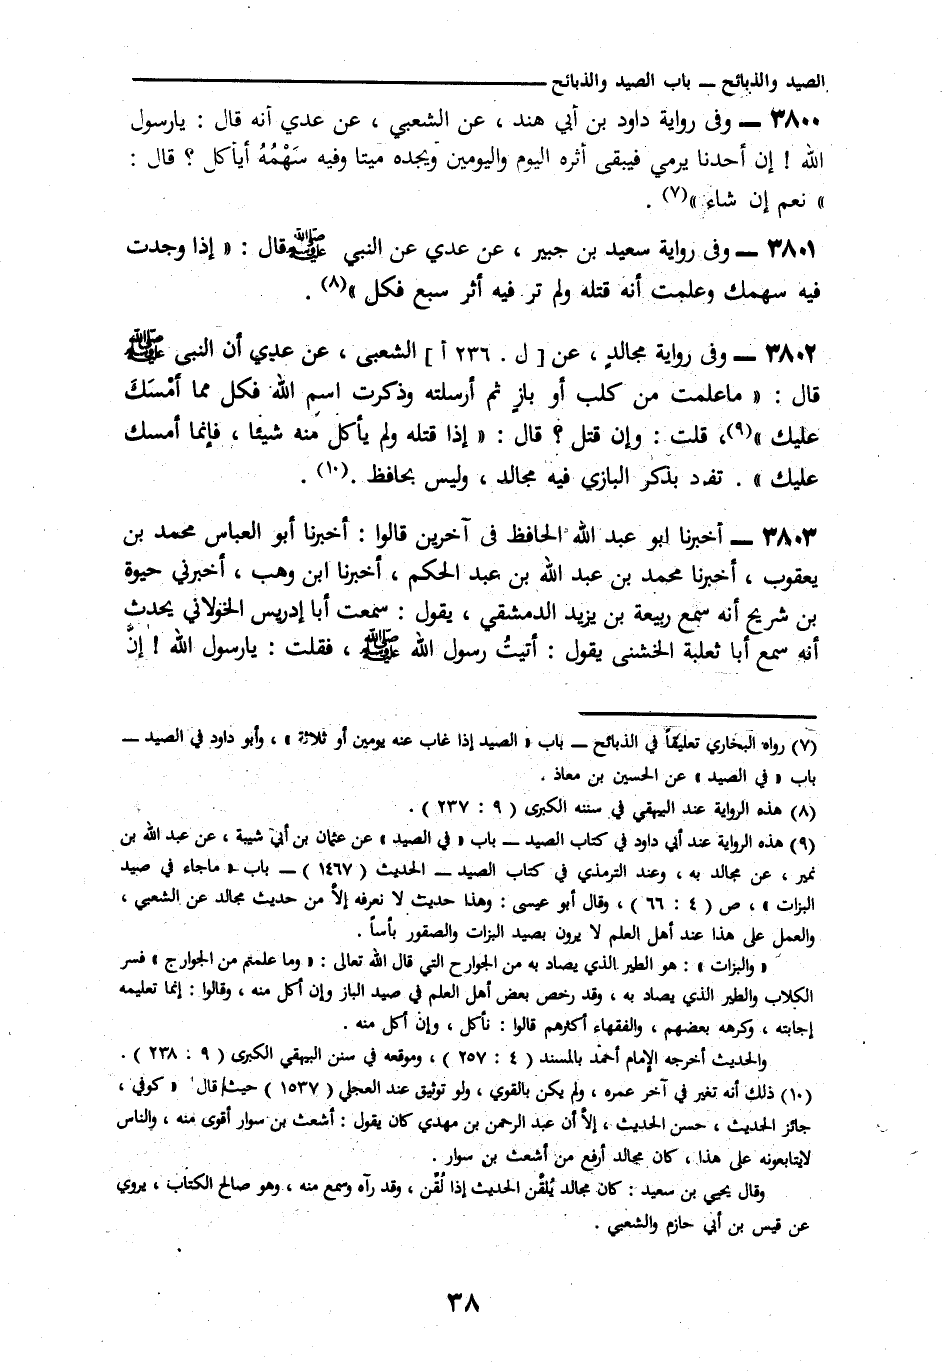 الصيد والذبائح ــ باب الصيد والذبائح
٣٨٠٠ ــ وفى رواية داود بن أبي هند ، عن الشعبي ، عن عدي أنه قال : يارسول
الله ! إن أحدنا يرمي فيبقى أثره اليوم واليومين ويجده ميتا وفيه سَهْمُهُ أيأكل ؟ قال :
« نعم إن شاء »(٧) .
٣٨٠١ ــ وفى رواية سعيد بن جبير ، عن عدي عن النبي ﷺ قال : « إذا وجدت
فيه سهمك وعلمت أنه قتله ولم تر فيه أثر سبع فكل »(٨) .
٣٨٠٢ ــ وفى رواية مجالدٍ ، عن [ ل . ٢٣٦ أ ] الشعبى ، عن عدي أن النبى ﷺ
قال : « ماعلمت من كلب أو بازٍ ثم أرسلته وذكرت اسم الله فكل مما أَمْسَكَ
عليك »(٩)، قلت : وإن قتل ؟ قال : « إذا قتله ولم يأكل منه شيئا ، فإنما أمسك
عليك » . تفرد بذكر البازي فيه مجالد ، وليس بحافظ .(١٠) .
٣٨٠٣ ــ أخبرنا ابو عبد الله الحافظ فى آخرين قالوا : أخبرنا أبو العباس محمد بن
يعقوب ، أخبرنا محمد بن عبد الله بن عبد الحكم ، أخبرنا ابن وهب ، أخبرني حيوة
بن شريح أنه سمع ربيعة بن يزيد الدمشقي ، يقول : سمعت أبا إدريس الخولاني يحدث
أنه سمع أبا ثعلبة الخشنى يقول : أتيتُ رسول الله ﷺ ، فقلت : يارسول الله ! إنَّ
(٧) رواه البخاري تعليقاً في الذبائح ــ باب « الصيد إذا غاب عنه يومين أو ثلاثة » ، وأبو داود في الصيد ــ
باب « في الصيد » عن الحسين بن معاذ .
(٨) هذه الرواية عند البيهقي في سننه الكبرى ( ٩ : ٢٣٧ ) .
(٩) هذه الرواية عند أبي داود في كتاب الصيد ــ باب « في الصيد » عن عثمان بن أبي شيبة ، عن عبد الله بن
نمير ، عن مجالد به ، وعند الترمذي في كتاب الصيد ــ الحديث ( ١٤٦٧ ) ــ باب « ماجاء في صيد
البزات » ، ص ( ٤ : ٦٦ ) ، وقال أبو عيسى : وهذا حديث لا نعرفه إلاَّ من حديث مجالد عن الشعبي ،
والعمل على هذا عند أهل العلم لا يرون بصيد البزات والصقور بأساً .
« والبزات » : هو الطير الذي يصاد به من الجوارح التي قال الله تعالى : « وما علمتم من الجوارح » فسر
الكلاب والطير الذي يصاد به ، وقد رخص بعض أهل العلم في صيد الباز وإن أكل منه ، وقالوا : إنما تعليمه
إجابته ، وكرهه بعضهم ، والفقهاء أكثرهم قالوا : نأكل ، وإن أكل منه .
والحديث أخرجه الإمام أحمد بالمسند ( ٤ : ٢٥٧ ) ، وموقعه في سنن البيهقي الكبرى ( ٩ : ٢٣٨ ) .
(١٠) ذلك أنه تغير في آخر عمره ، ولم يكن بالقوي ، ولو توثيق عند العجلي ( ١٥٣٧ ) حيث قال « كوفي ،
جائز الحديث ، حسن الحديث ، إلاَّ أن عبد الرحمن بن مهدي كان يقول : أشعث بن سوار أقوى منه ، والناس
لايتابعونه على هذا ، كان مجالد أرفع من أشعث بن سوار .
وقال يحيي بن سعيد : كان مجالد يُلقَّن الحديث إذا لُقِّن ، وقد رآه وسمع منه ، وهو صالح الكتاب ، يروي
عن قيس بن أبي حازم والشعبي .
٣٨